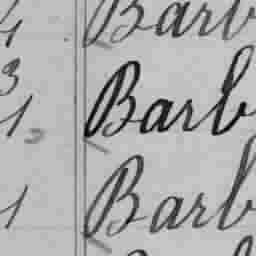 4 Barb
3
1, Barb
1 Barb